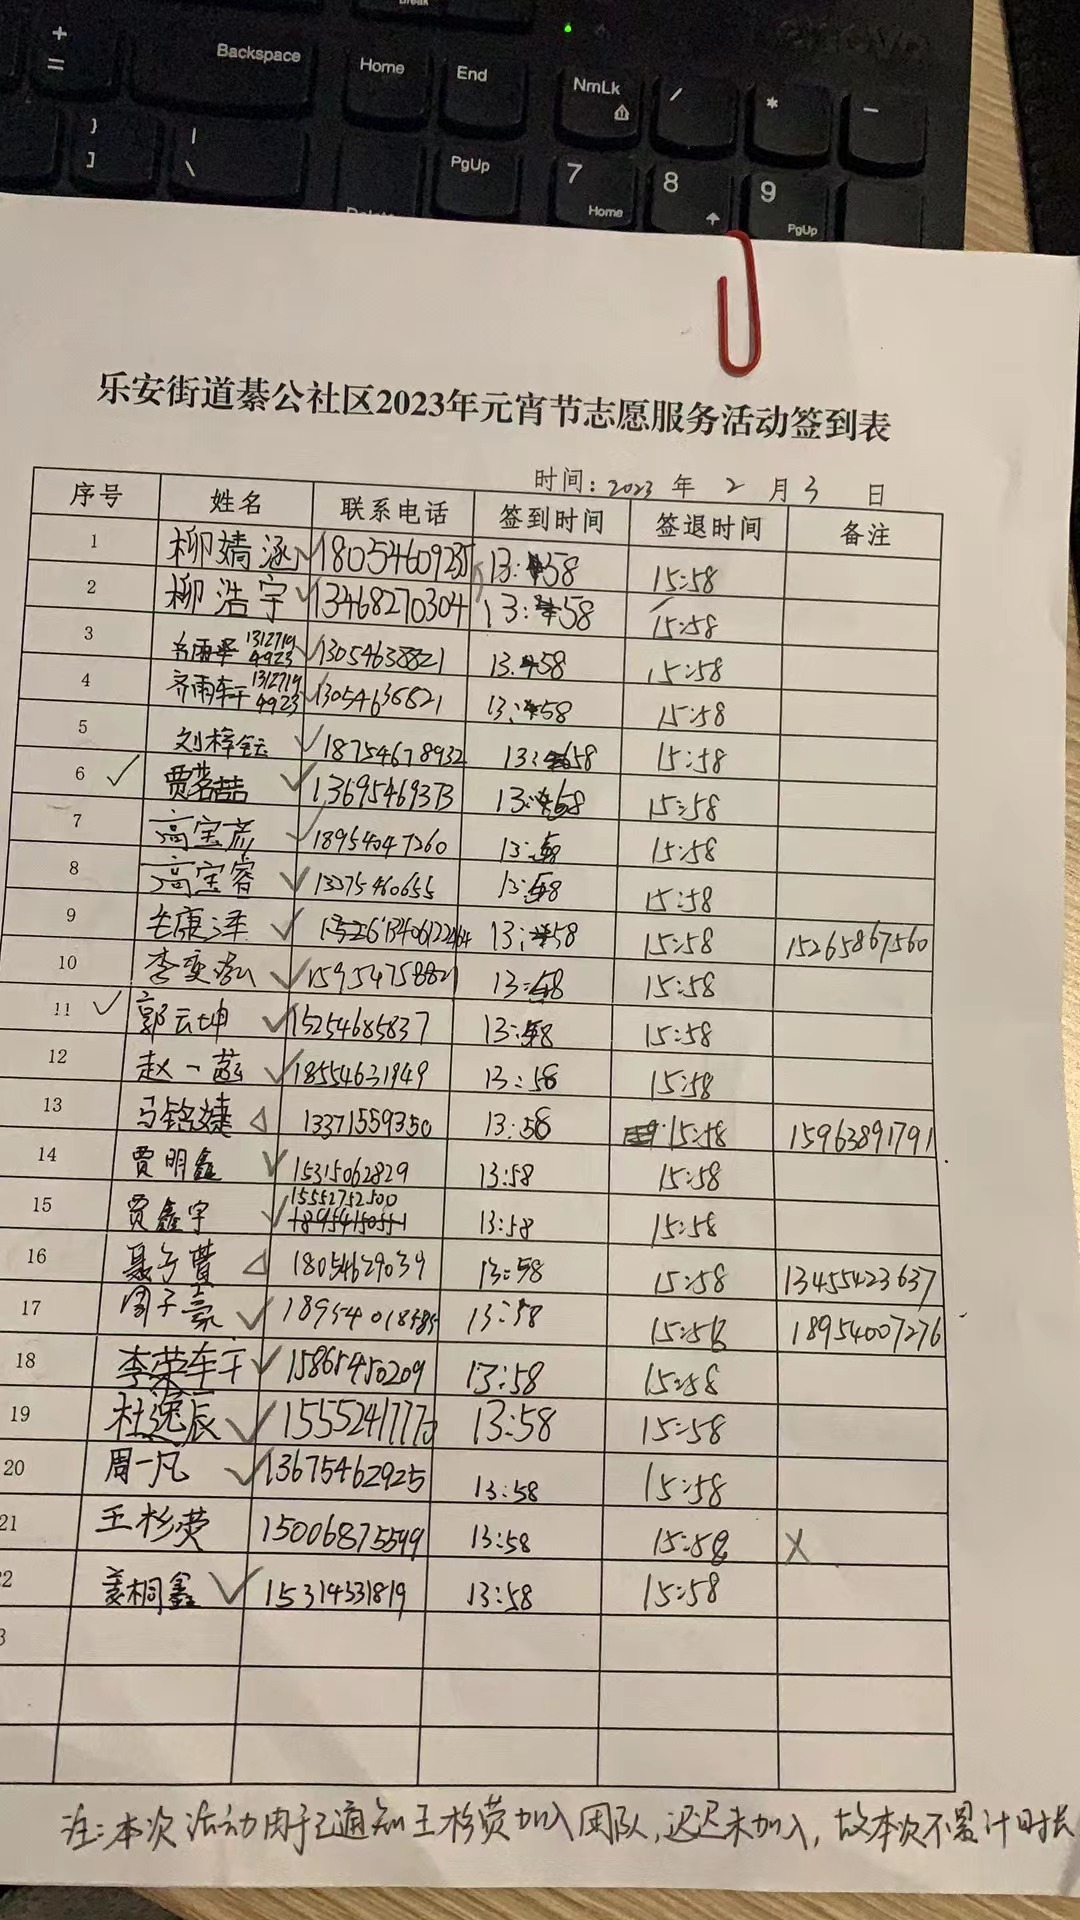 +
=
Backspace
Home
End
NmLk
/
*
-
}
]
|
\
PgUp
7
Home
8
9
PgUp
乐安街道綦公社区2023年元宵节志愿服务活动签到表
时间：2023 年 2 月 3 日
序号 姓名 联系电话 签到时间 签退时间 备注
1 柳婧涵 18054609235 13:58 15:58
2 柳浩宇 13468270304 13:58 15:58
3 齐雨 1312719 4923 13054638821 13:58 15:58
4 齐雨轩 1312719 4923 13054638821 13:58 15:58
5 刘梓铉 18754678932 13:58 15:58
6 贾茗喆 13695469373 13:58 15:58
7 高宝 18954047260 13:58 15:58
8 高宝睿 13375460655 13:58 15:58
9 康泽 13:58 15:58 15265867560
10 李奕 15954758821 13:58 15:58
11 郭云坤 15254685837 13:58 15:58
12 赵一 18554631949 13:58 15:58
13 马铭婕 13371559350 13:58 15:58 15963891791
14 贾明鑫 15315062829 13:58 15:58
15 贾鑫宇 15552752500 13:58 15:58
16 聂子萱 18054629039 13:58 15:58 13455423637
17 周子豪 13:58 15:58 18954007276
18 李荣轩 15865450209 13:58 15:58
19 杜逸辰 15552417770 13:58 15:58
20 周一凡 13675462925 13:58 15:58
21 王杉荧 15006875599 13:58 15:58 X
22 姜桐鑫 15314331819 13:58 15:58
注：本次活动由于已通知王杉荧加入团队，迟迟未加入，故本次不累计时长